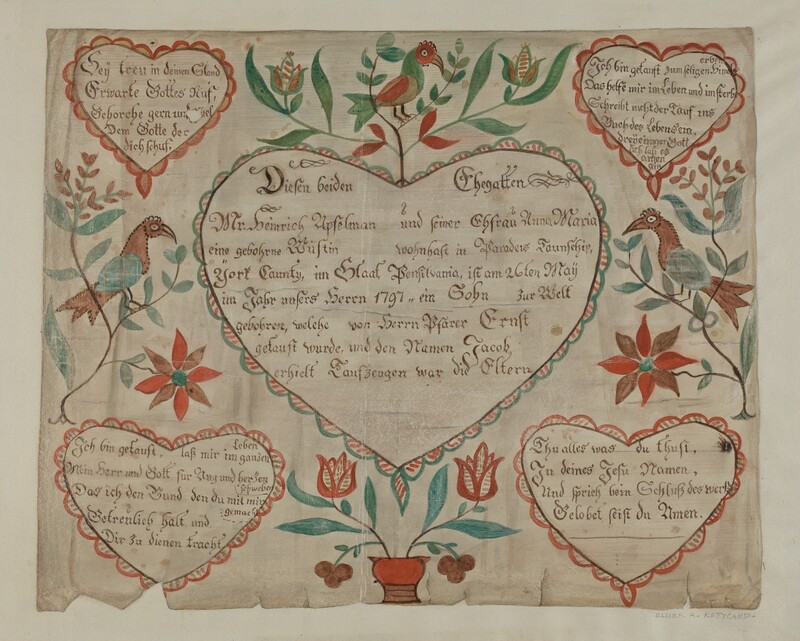 Sey treu in deinem Stand
Erwarte Gottes Ruf,
Gehorche gern und
Dem Gotte der
dich schuf.
erbin
Ich bin getauft zum seligen
Das helfe mir im Leben und im sterb
Schreibt mich der Tauf ins
Buch des Lebens ein,
dreyeiniger Gott
ich laß es
Diesen beiden Ehegatten
Mr. Heinrich Apfelman und seiner Ehfrau Anna Maria
eine gebohrne Wüstin wohnhaft in Paradeis Taunschip,
York Caunty, im Staat Pensilvania, ist am 26ten May
im Jahr unsers Herrn 1797 ein Sohn zur Welt
gebohren, welche von Herrn Pfärer Ernst
getauft wurde, und den Namen Jacob,
erhielt Taufzeugen war die Eltern
Ich bin getauft, laß mir im ganden
Leben
Mein Herr und Gott für Aug und herzen
schweben
Das ich den Bund, den du mit mir
gemacht
Getreulich halt und
Dir zu dienen tracht
Thu alles was du thust,
In deines Jesu Namen,
Und sprich beim Schluß des werks
Gelobet seist du Amen.